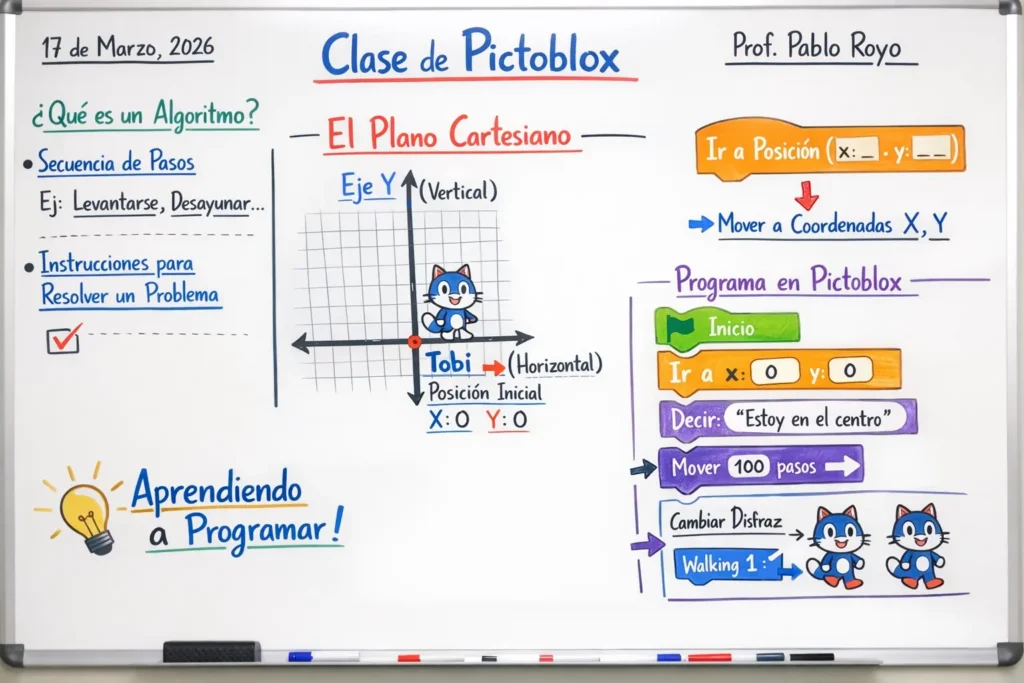 17 de Marzo, 2026
Clase de Pictoblox
Prof. Pablo Royo
¿Qué es un Algoritmo?
• Secuencia de Pasos
Ej: Levantarse, Desayunar...
• Instrucciones para
Resolver un Problema
El Plano Cartesiano
Eje Y (Vertical)
Tobi (Horizontal)
Posición Inicial
X: 0 Y: 0
Aprendiendo
a Programar!
Ir a Posición (x: _ . y: _ _)
Mover a Coordenadas X, Y
Programa en Pictoblox
Inicio
Ir a x: 0 y: 0
Decir: "Estoy en el centro"
Mover 100 pasos
Cambiar Disfraz
Walking 1: